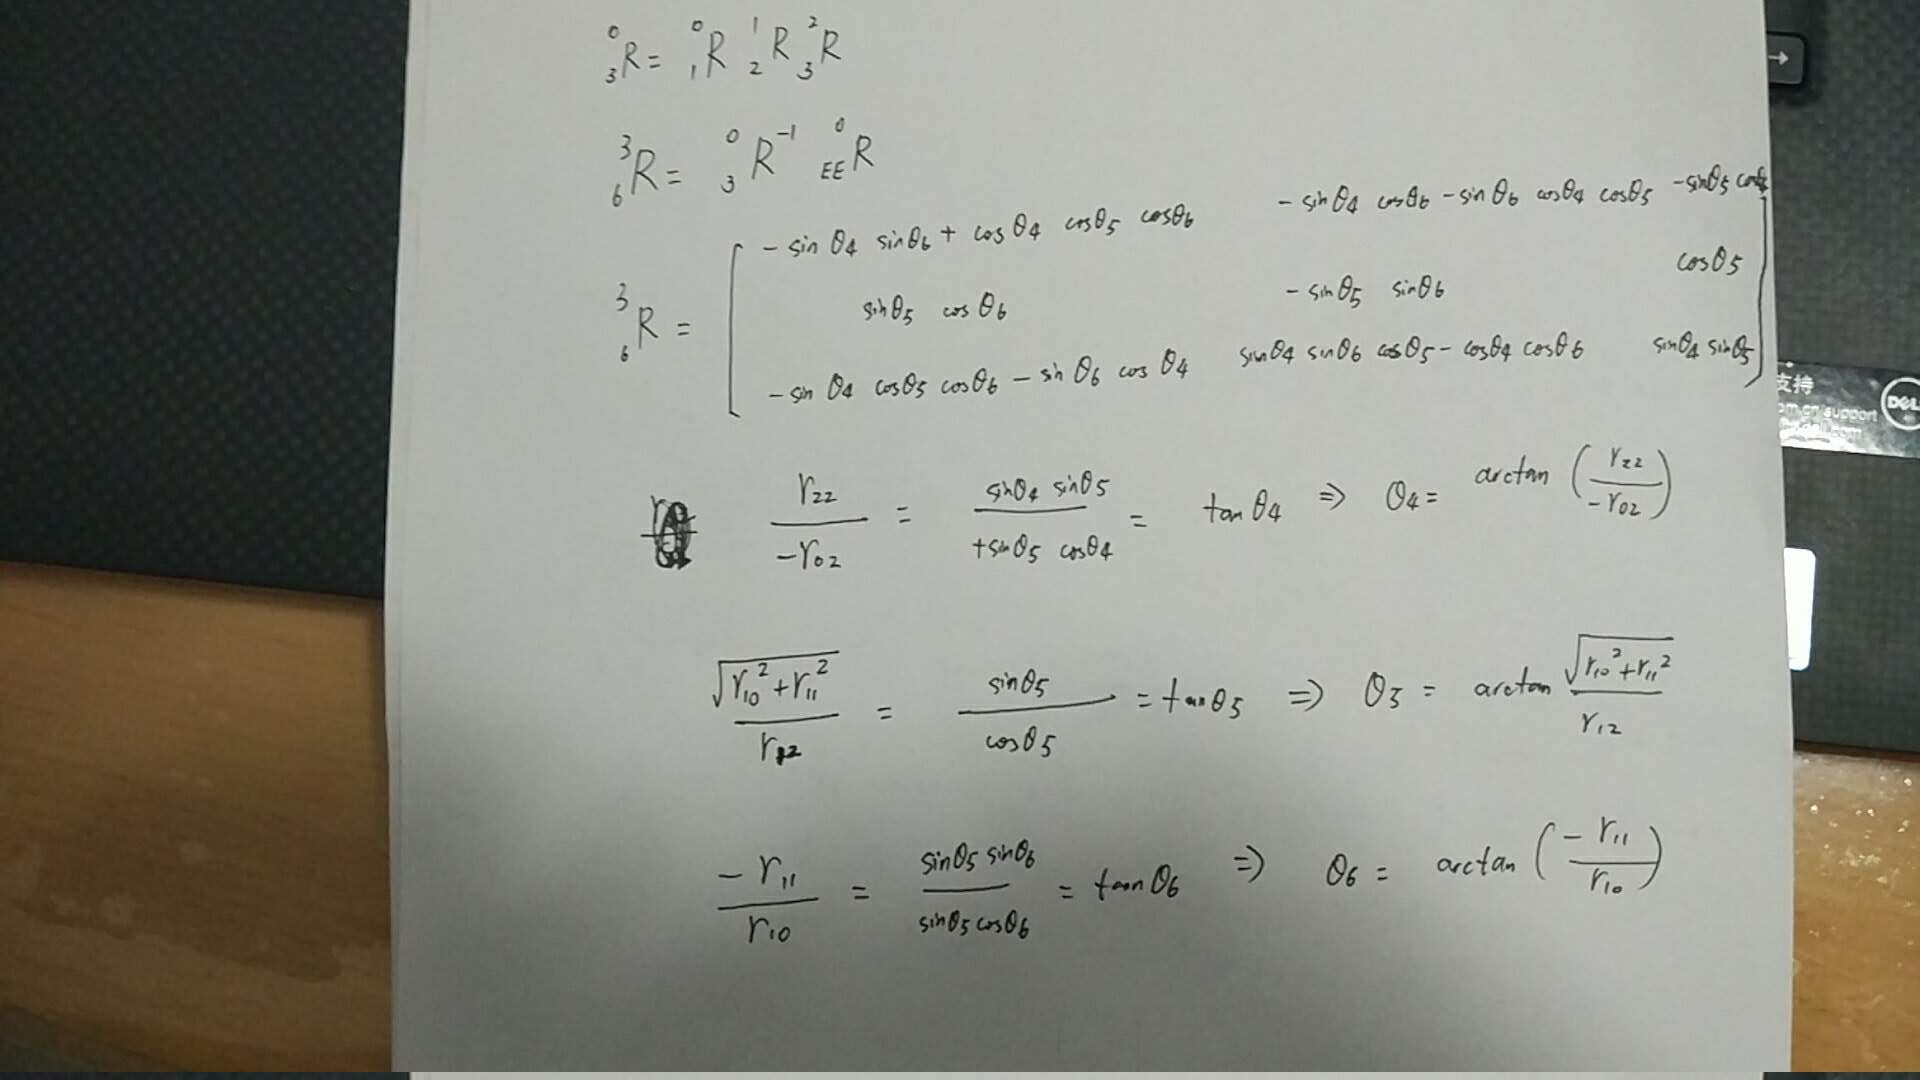 ⁰₃R = ⁰₁R ¹₂R ²₃R
³₆R = ⁰₃R⁻¹ ⁰_EE R
³₆R = [ -sinθ4 sinθ6 + cosθ4 cosθ5 cosθ6   -sinθ4 cosθ6 - sinθ6 cosθ4 cosθ5   -sinθ5 cosθ4
sinθ5 cosθ6   -sinθ5 sinθ6   cosθ5
-sinθ4 cosθ5 cosθ6 - sinθ6 cosθ4   sinθ4 sinθ6 cosθ5 - cosθ4 cosθ6   sinθ4 sinθ5 ]
r22 / -r02 = sinθ4 sinθ5 / +sinθ5 cosθ4 = tanθ4 ⇒ θ4 = arctan (r22 / -r02)
√(r10² + r11²) / r12 = sinθ5 / cosθ5 = tanθ5 ⇒ θ5 = arctan √(r10² + r11²) / r12
-r11 / r10 = sinθ5 sinθ6 / sinθ5 cosθ6 = tanθ6 ⇒ θ6 = arctan (-r11 / r10)
支持
support
DELL